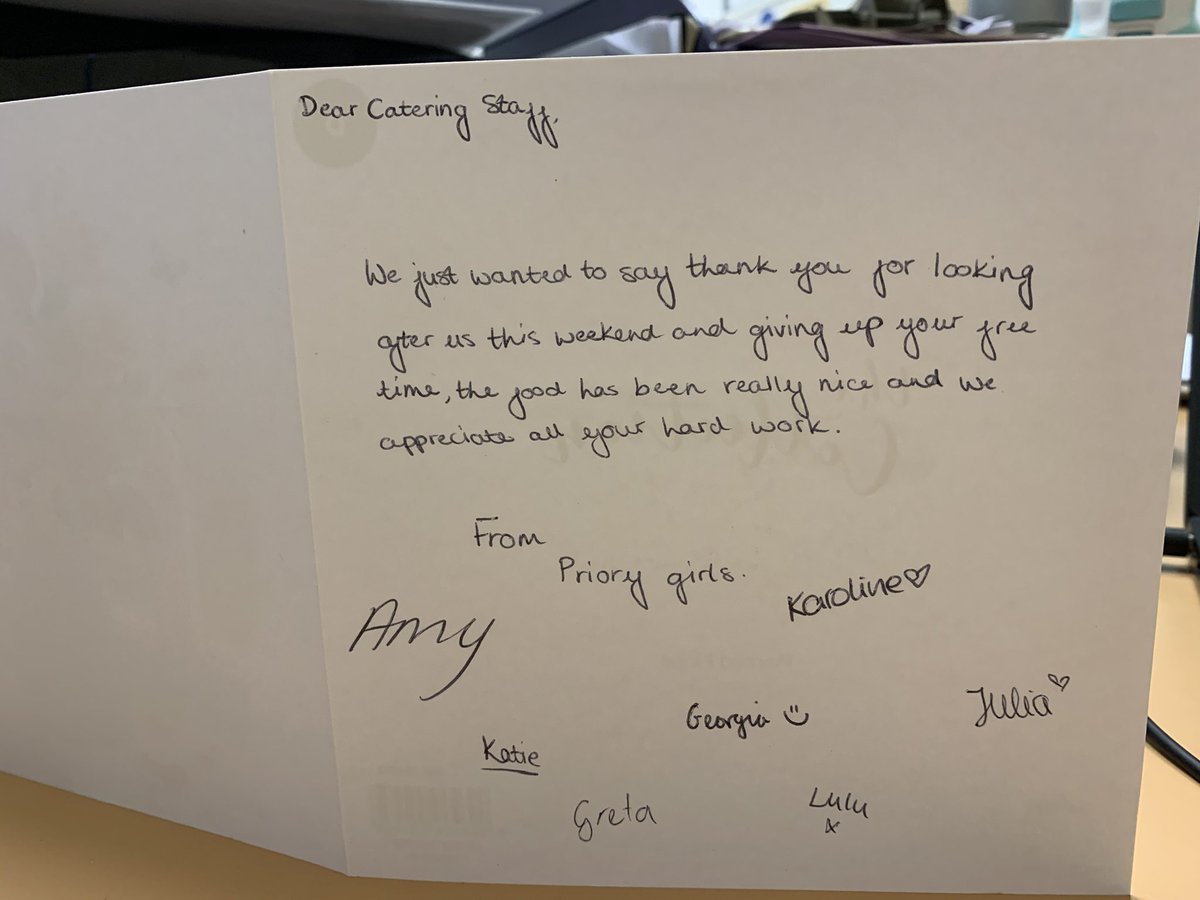 Dear Catering Staff,
We just wanted to say thank you for looking
after us this weekend and giving up your free
time, the food has been really nice and we
appreciate all your hard work.
From
Priory girls.
Karoline♡
Amy
Julia♡
Georgia
Katie
Greta
Lulu
x